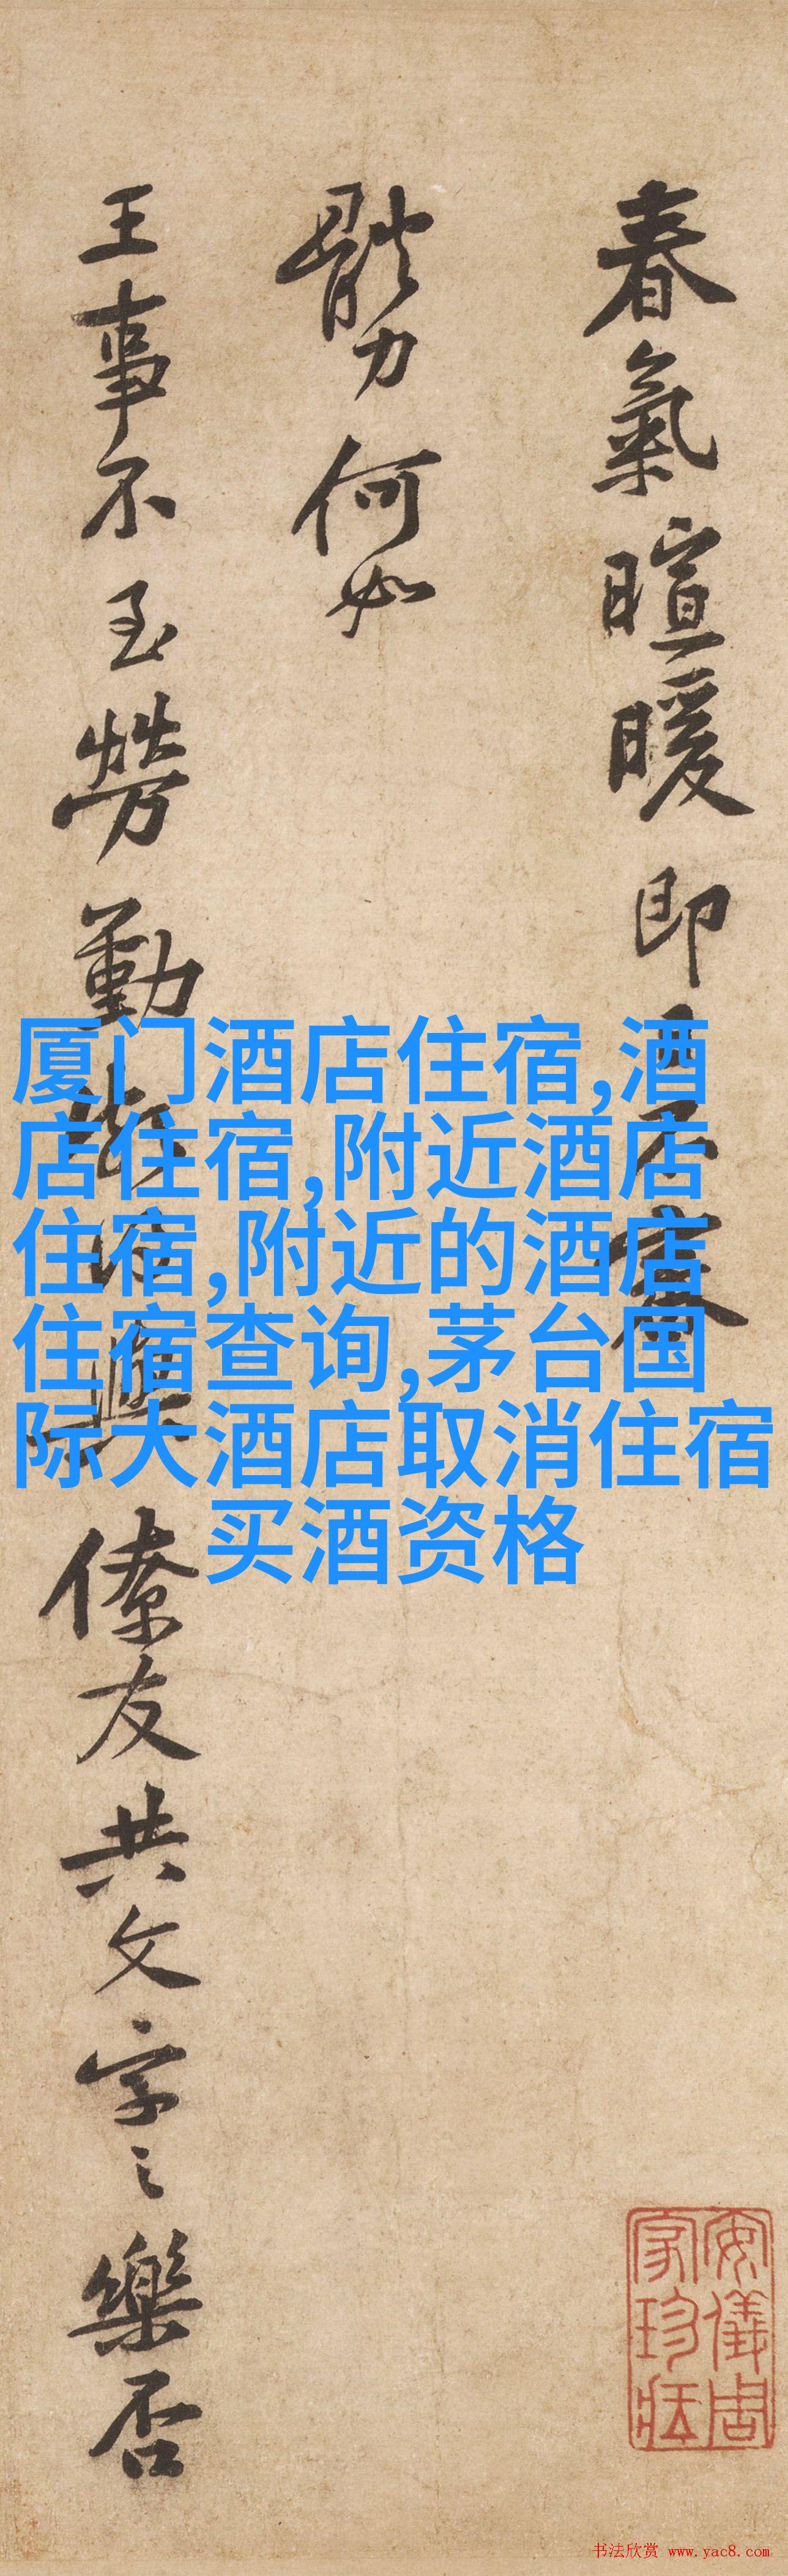 春氣暄暖即日不審
體力何如
王事不至勞勤
僚友共文字之樂否
厦门酒店住宿,酒
店住宿,附近酒店
住宿,附近的酒店
住宿查询,茅台国
际大酒店取消住宿
买酒资格
安儀周
家珍藏
书法欣赏 www.yac8.com